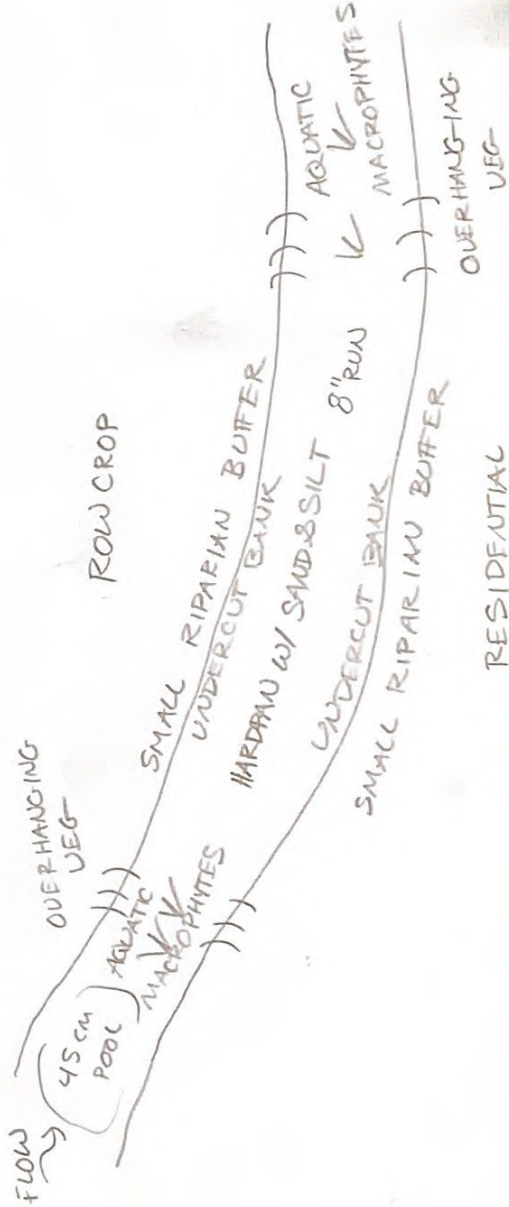 FLOW
45 CM
POOL
OVERHANGING
VEG
AQUATIC
MACROPHYTES
ROW CROP
SMALL RIPARIAN BUFFER
UNDERCUT BANK
HARDPAN W/ SAND & SILT 8" RUN
UNDERCUT BANK
SMALL RIPARIAN BUFFER
RESIDENTIAL
AQUATIC
MACROPHYTES
OVERHANGING
VEG